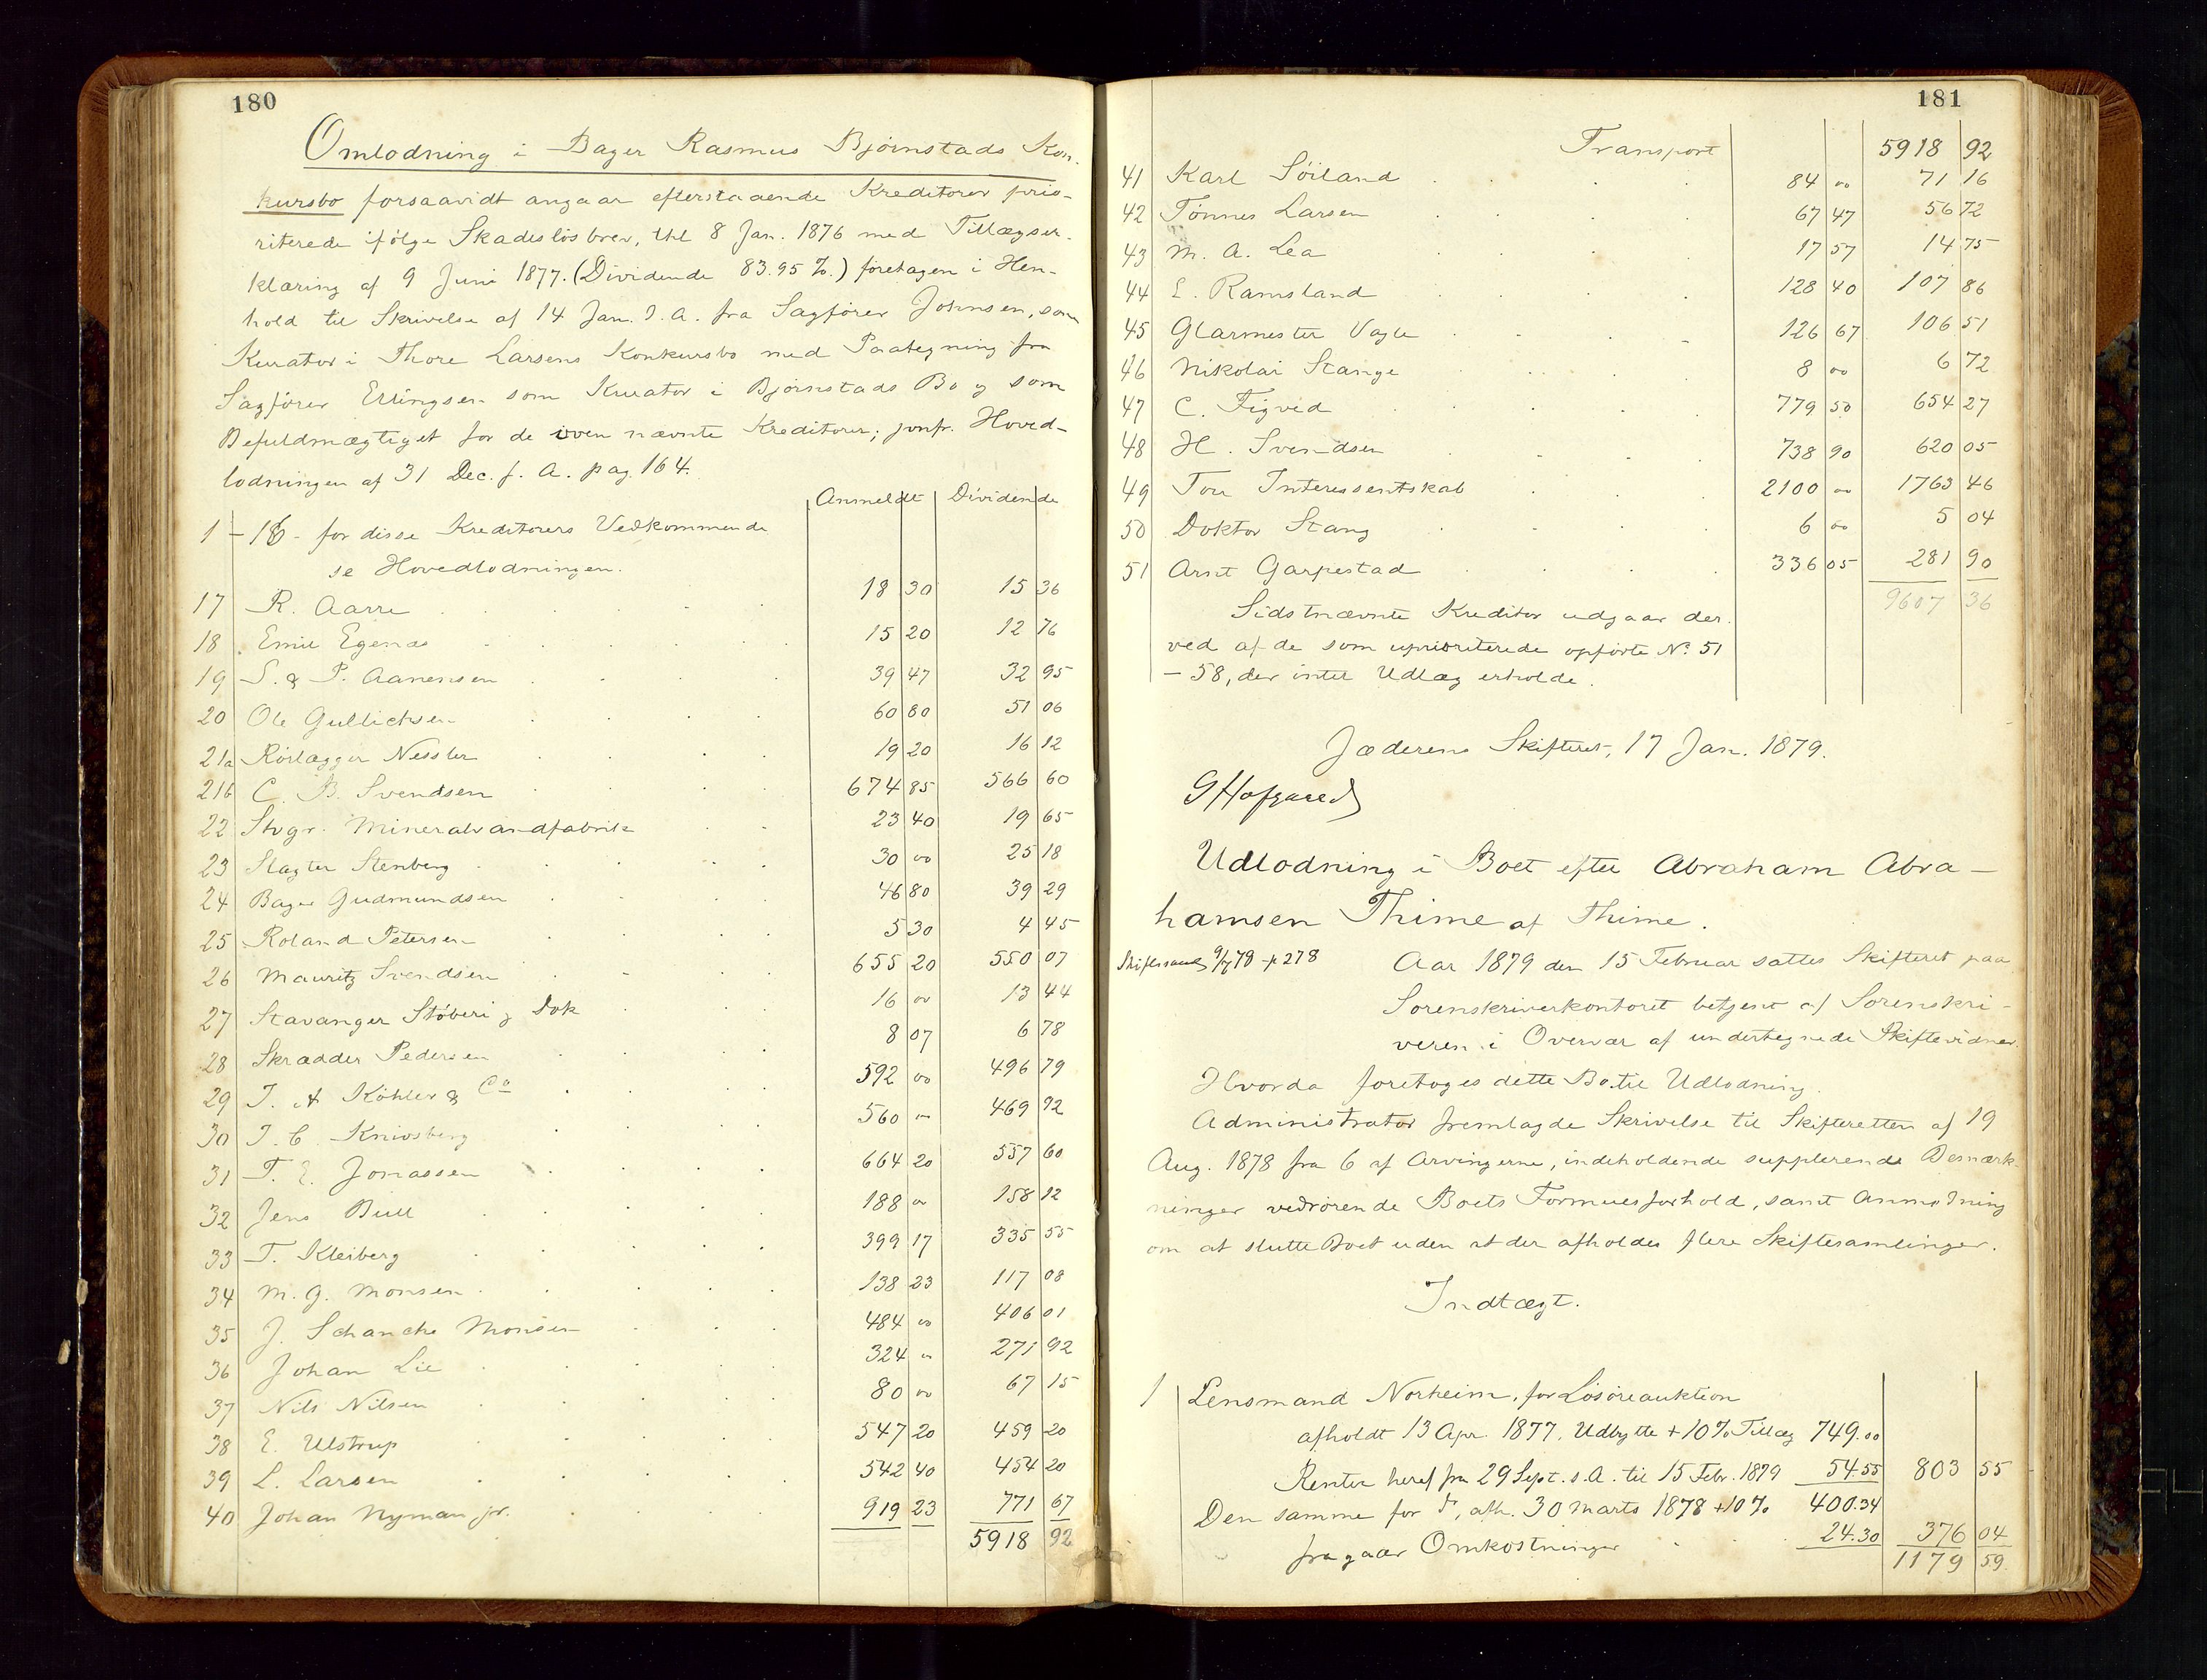 180
Omlodning i Bager Rasmus Bjørnstads Kon-
kursbo forsaavidt angaar efterstaaende Kreditorer prio-
riterede ifølge Skadesløsbrev, thl 8 Jan. 1876 med Tillægser-
klæring af 9 Juni 1877. (Dividende 83.95 %.) foretagen i Hen-
hold til Skrivelse af 14 Jan. d. A. fra Sagfører Johnsen, som
Kurator i Thore Larsens Konkursbo med Paategning fra
Sagfører Erlingsen som Kurator i Bjørnstads Bo og som
Befuldmægtiget for de oven nævnte Kreditorer; jvnfr. Hoved-
lodningen af 31 Dec. f. A. pag. 164.
Anmeldt Dividende
1 - 16 - for disse Kreditorers Vedkommende
se Hovedlodningen.
17 R. Aarre 18 30 15 36
18 Emil Egenæs 15 20 12 76
19 S. & P. Aanensen 39 47 32 95
20 Ole Gullichsen 60 80 51 06
21a Rørlægger Nessler 19 20 16 12
21b C. B. Svendsen 674 85 566 60
22 Stvgr. Mineralvandfabrik 23 40 19 65
23 Slagter Stenberg 30 00 25 18
24 Bager Gudmundsen 46 80 39 29
25 Roland Petersen 5 30 4 45
26 Mauritz Svendsen 655 20 550 07
27 Stavanger Støberi & Dok 16 00 13 44
28 Skrædder Pedersen 8 07 6 78
29 T. A Köhler & Co 592 00 496 79
30 J. C. Knivsberg 560 00 469 92
31 T. E. Jonassen 664 20 557 60
32 Jens Bull 188 00 158 12
33 T. Kleiberg 399 17 335 55
34 M. G. Monsen 138 23 117 08
35 J. Schanche Monsen 484 00 406 01
36 Johan Lie 324 00 271 92
37 Nils Nilsen 80 00 67 15
38 E. Ulstrup 547 20 459 20
39 L. Larsen 542 40 454 20
40 Johan Nyman jr. 919 23 771 67
5918 92
181
Transport 5918 92
41 Karl Söiland 84 00 71 16
42 Tønnes Larsen 67 47 56 72
43 M. A. Lea 17 57 14 75
44 E. Ramsland 128 40 107 86
45 Glarmester Vagle 126 67 106 51
46 Nikolai Stange 8 00 6 72
47 C. Figved 779 50 654 27
48 H. Svendsen 738 90 620 05
49 Tou Interessentskab 2100 00 1763 46
50 Doktor Stang 6 00 5 04
51 Arnt Garpestad 336 05 281 90
9607 36
Sidstnævnte Kreditor udgaar der-
ved af de som uprioriterede opførte No. 51
- 58, der intet Udlæg erholde.
Jæderens Skifteret, 17 Jan. 1879.
GHofgaard
Udlodning i Boet efter Abraham Abra-
hamsen Thime af Thime.
9/7 78 - p 278
Aar 1879 den 15 Februar sattes Skifteret paa
Sorenskriverkontoret betjent af Sorenskri-
veren i Overvær af undertegnede Skiftevidner.
Hvorda foretoges dette Bo til Udlodning.
Administrator fremlagde Skrivelse til Skifteretten af 19
Aug. 1878 fra 6 af Arvingerne, indeholdende supplerende Bemærk-
ninger vedrørende Boets Formuesforhold, samt Anmodning
om at slutte Boet uden at der afholdes flere Skiftesamlinger.
Indtægt.
1 Lensmand Norheim, for Løsøreauktion
afholdt 13 Apr. 1877, Udbytte + 10% Tillæg 749.00
Renter heraf fra 29 Sept. s. A. til 15 Febr. 1879 54.55 803 55
Den samme for do, afh. 30 Marts 1878 + 10% 400.34
fragaar Omkostninger 24.30 376 04
1179 59